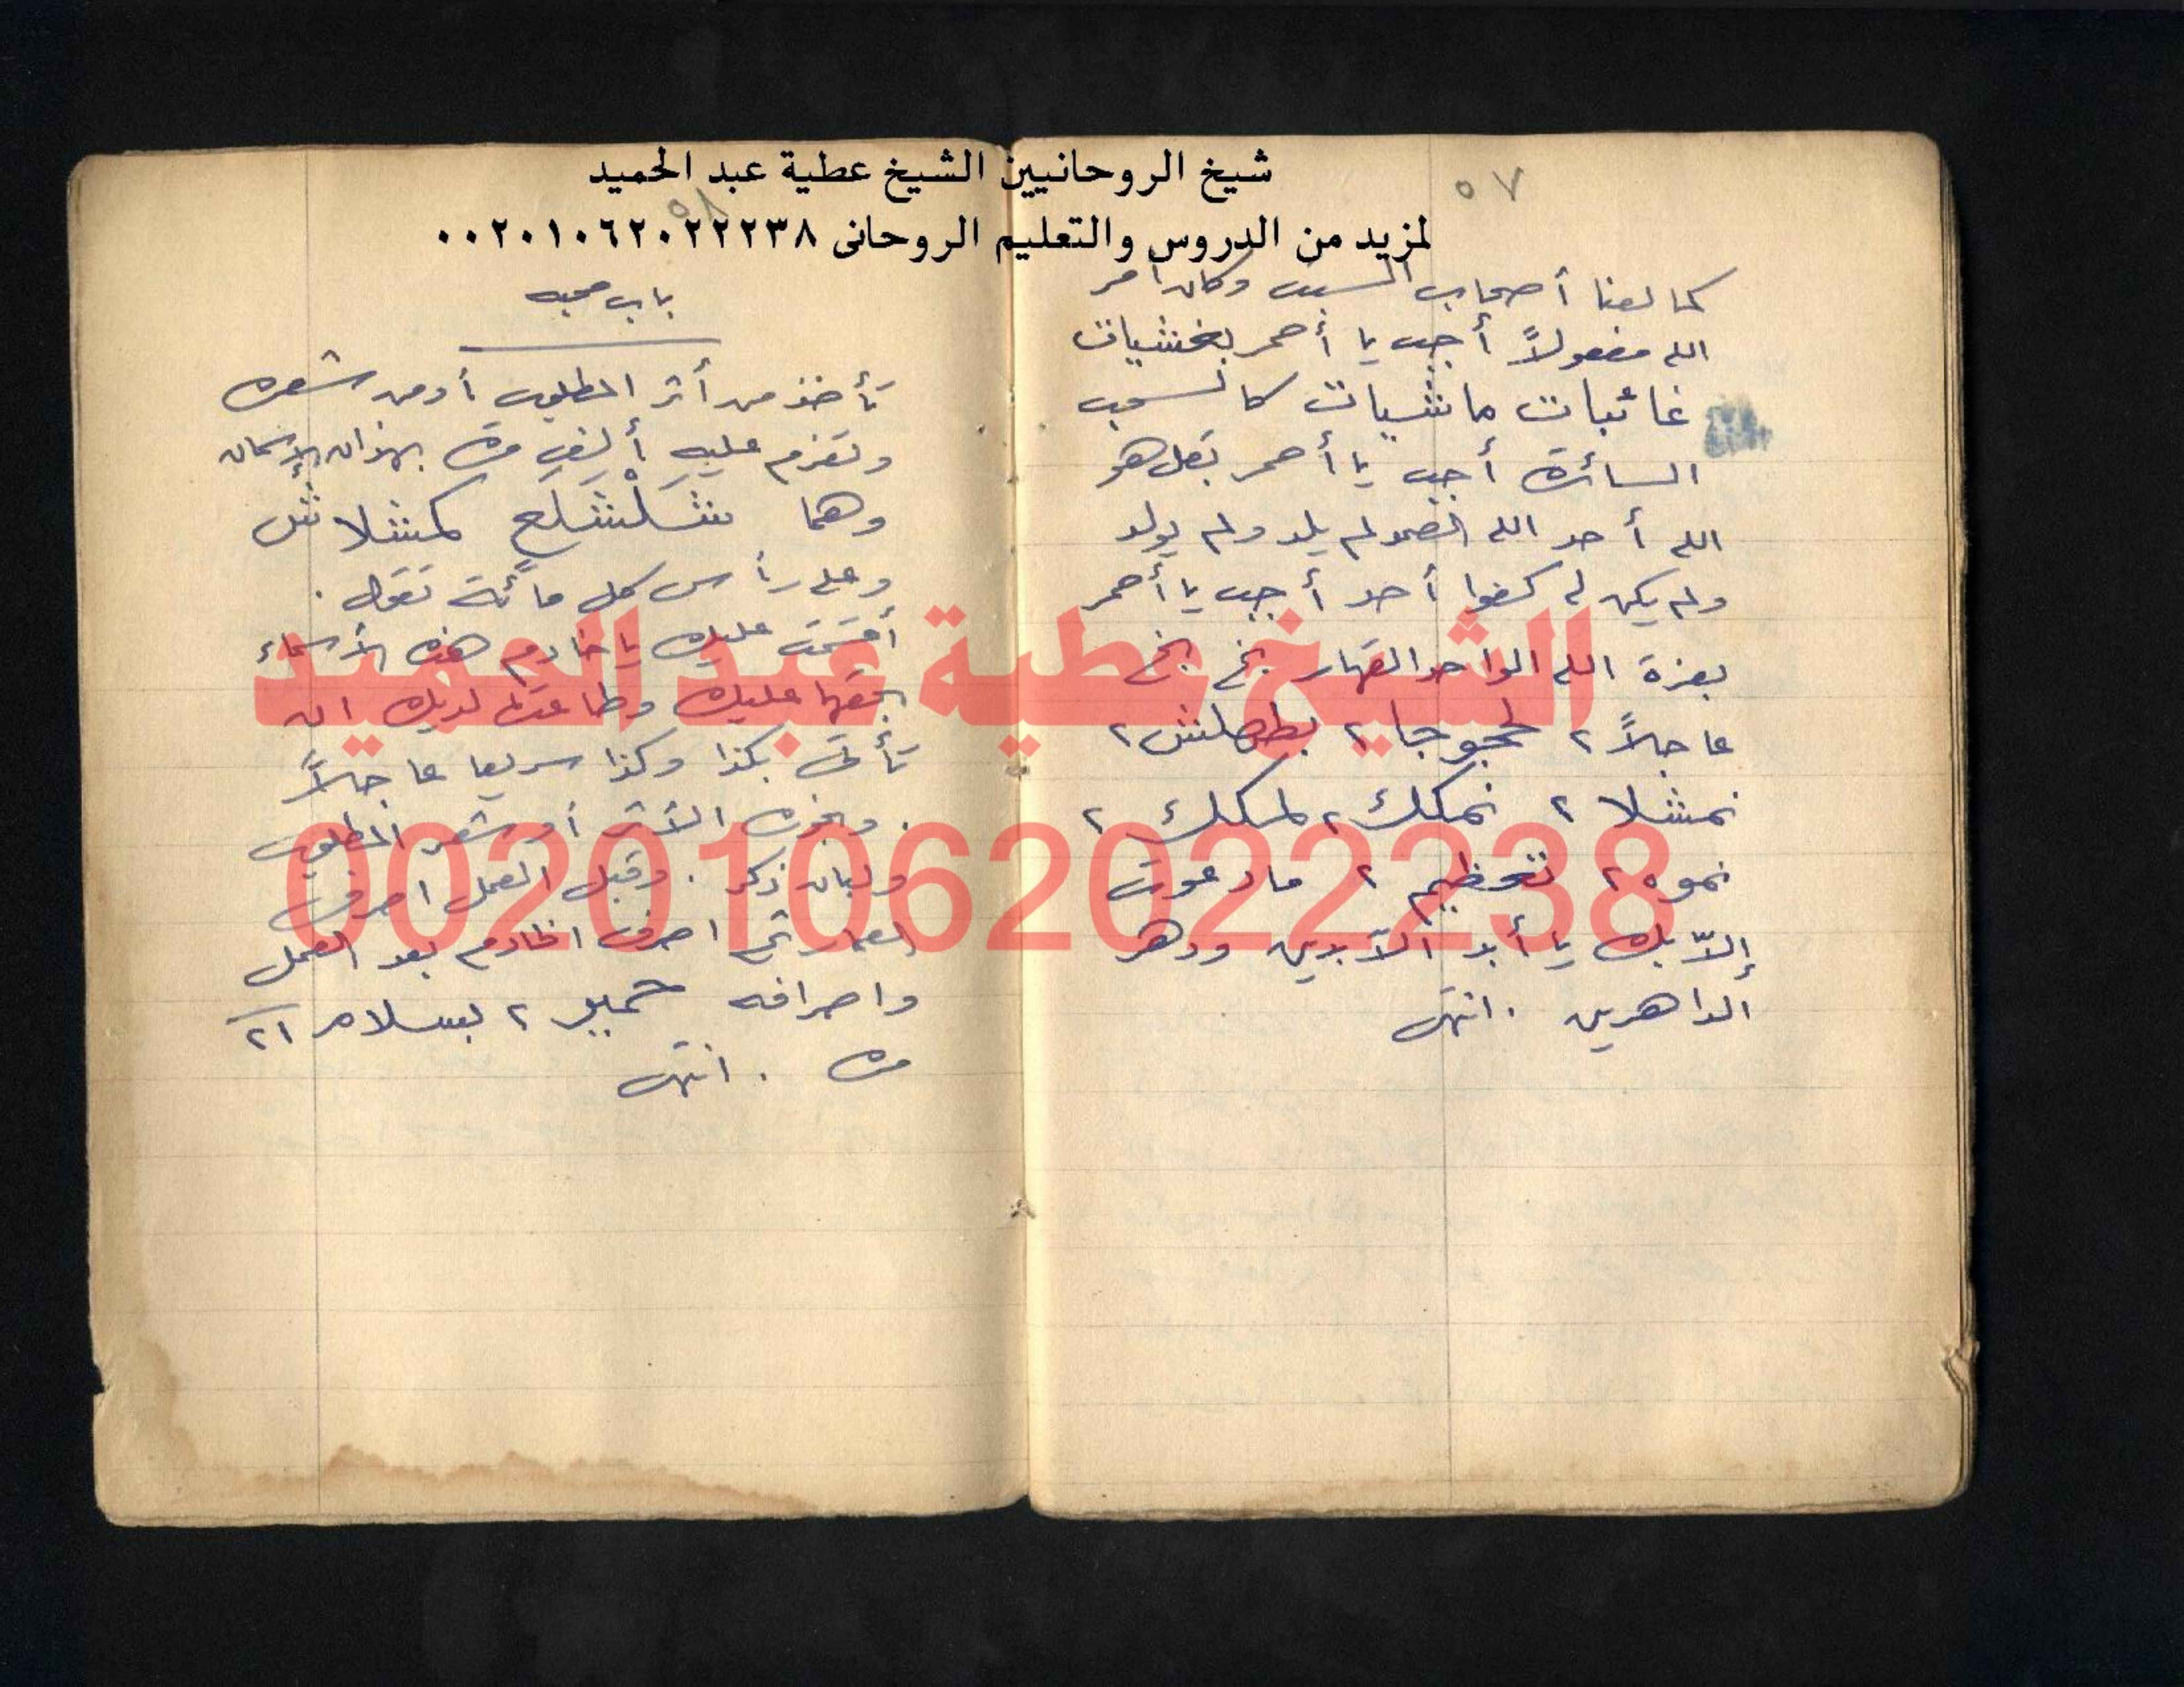 شيخ الروحانيين الشيخ عطية عبد الحميد
لمزيد من الدروس والتعليم الروحانى ٠٠٢٠١٠٦٢٠٢٢٢٣٨
٥٧
كما لعنا أصحاب السبت وكان أمر
الله مفعولاً أجب يا أحمر بخشيات
غائبات ماشيات كالسحب
السائرة أجب يا أحمر بقل هو
الله أحد الله الصمد لم يلد ولم يولد
ولم يكن له كفوا أحد أجب يا أحمر
بعزة الله الواحد القهار بخ بخ
عاجلاً ٢ لحجوجا ٢ بطهلش ٢
نمشلا ٢ نمكك ٢ لمكك ٢
نموه ٢ ٢ مادعوت
إلاّ بك يا أبد الآبدين ودهر
الداهرين . انتهى
٥٨
باب محبه
تأخذ من أثر المطلوب أو من شعره
وتعزم عليه ألف مرة بهذان الإسمان
وهما شَلْشَلَعٍ كمشلا شل
وعلى رأس كل مائة تقول .
أقسمت عليك يا خادم هذه الأسماء
بحقها عليك وطاعتها لديك ان
تأتى بكذا وكذا سريعا عاجلاً
. وبخره الأثر أو شعر المطلوب
ولبان ذكر . وقبل العمل اصرف
العمار ثم اصرف الخادم بعد العمل
واصرافه ٢ بسلام ٢١
مرة . انتهى
الشيخ عطية عبد الحميد
00201062022238